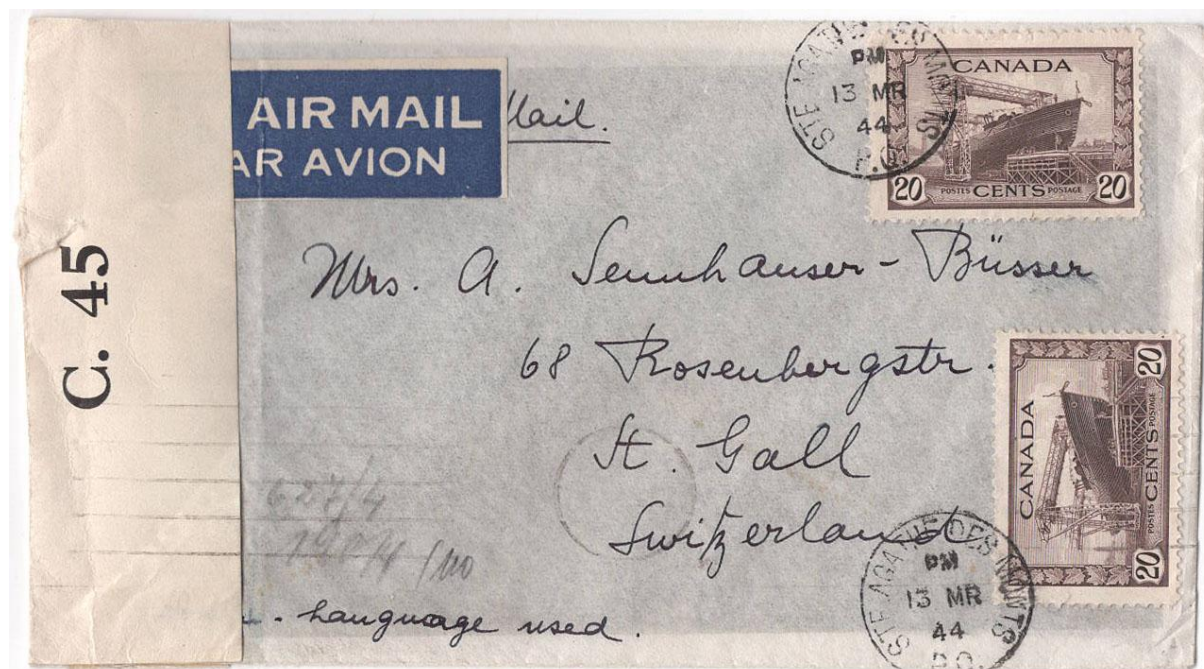 AIR MAIL
AR AVION
Mail.
STE AGATHE DES MONTS
PM
13 MR
44
P.Q.
CANADA
20 POSTES CENTS POSTAGE 20
C. 45
Mrs. A. Sennhauser-Büsser
68 Rosenbergstr.
St. Gall
Switzerland
CANADA
20 POSTES CENTS POSTAGE 20
STE AGATHE DES MONTS
PM
13 MR
44
P.Q.
language used.